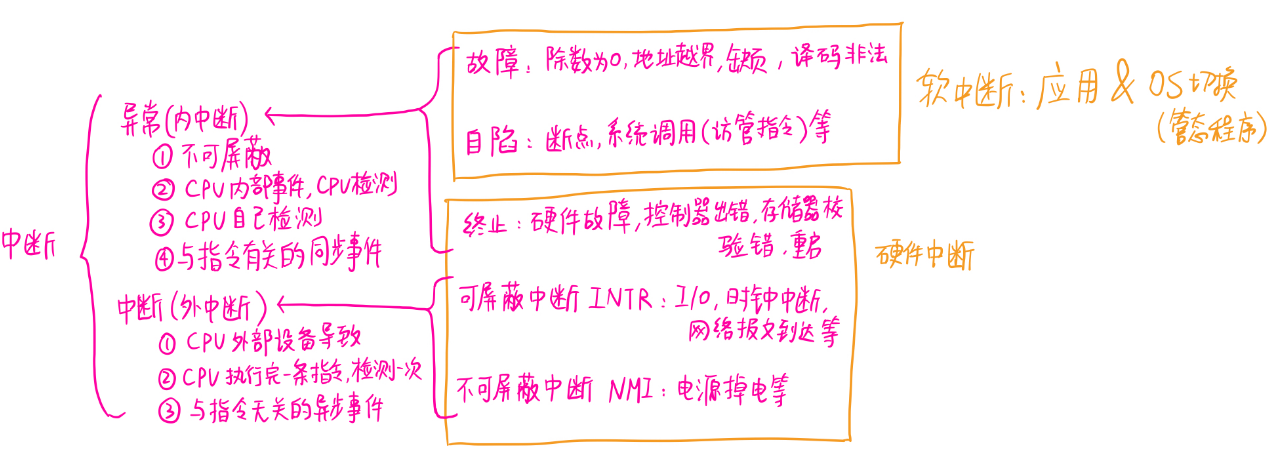 中断
异常(内中断)
① 不可屏蔽
② CPU内部事件,CPU检测
③ CPU自己检测
④与指令有关的同步事件
中断(外中断)
① CPU外部设备导致
② CPU执行完一条指令,检测一次
③ 与指令无关的异步事件
故障:除数为0,地址越界,缺页,译码非法
自陷:断点,系统调用(访管指令)等
软中断:应用 & OS切换
(管态程序)
终止:硬件故障,控制器出错,存储器校
验错,重启
可屏蔽中断 INTR:I/O,时钟中断,
网络报文到达等
不可屏蔽中断 NMI:电源掉电等
硬件中断